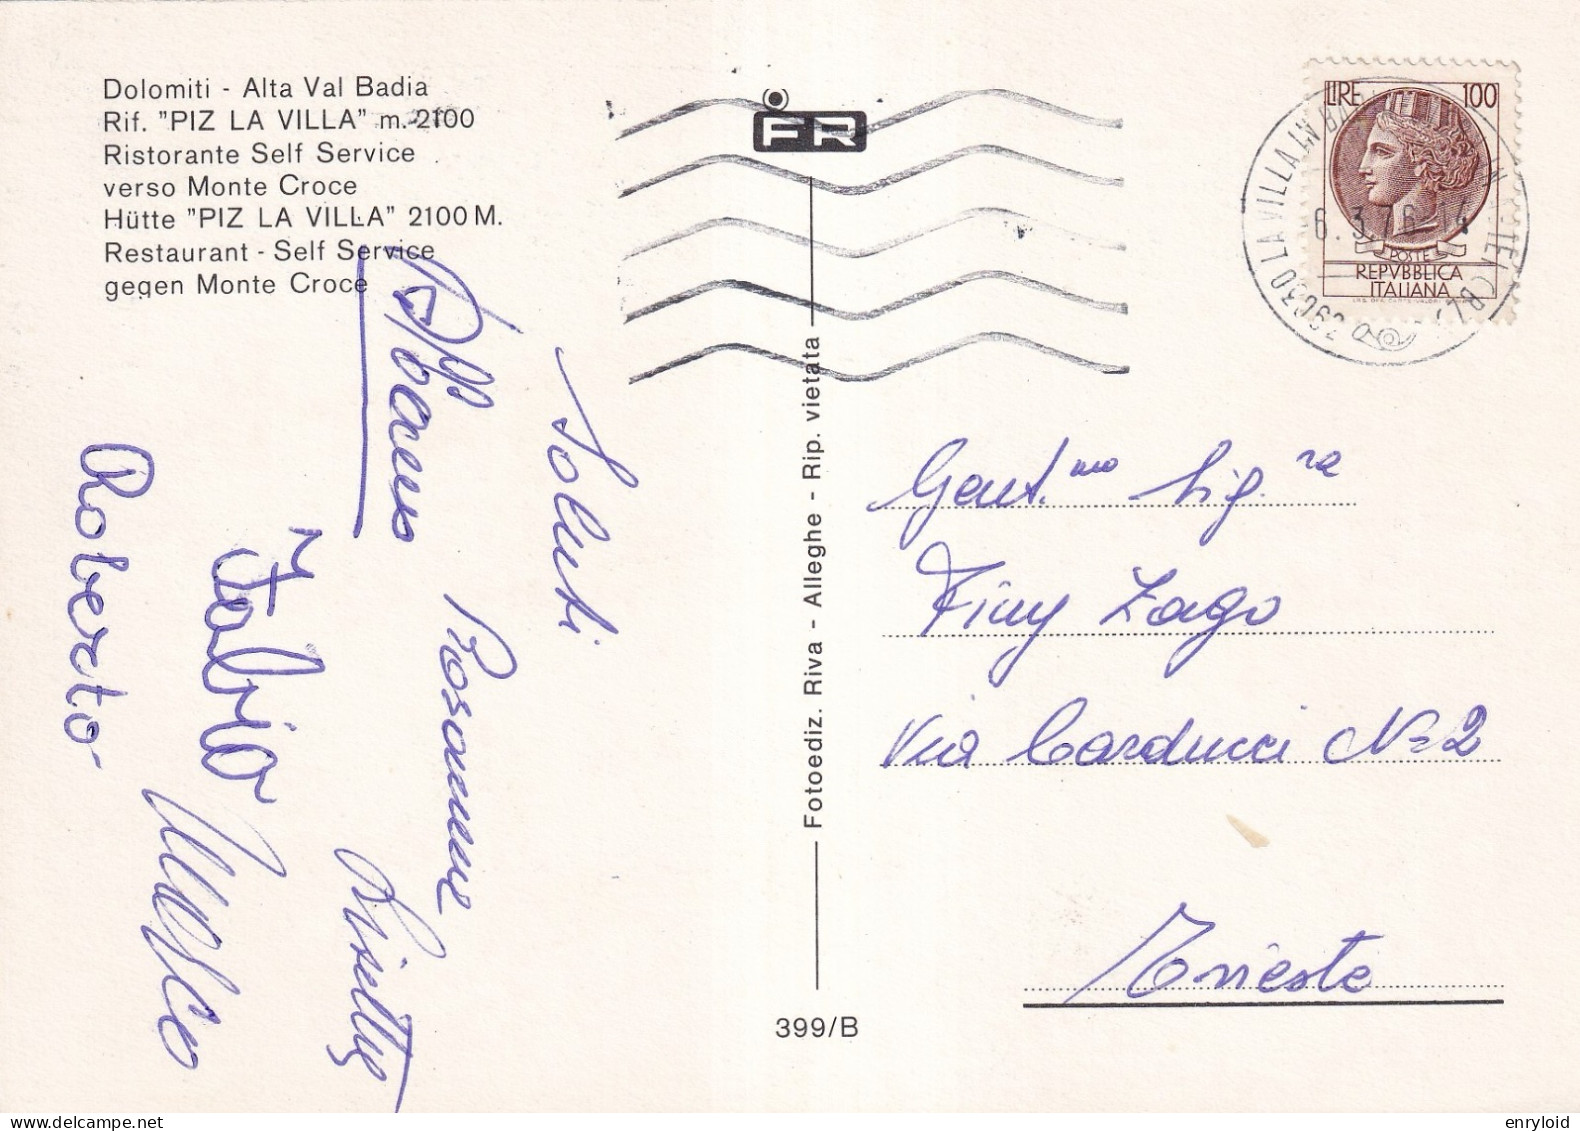 Dolomiti - Alta Val Badia
Rif. "PIZ LA VILLA" m. 2100
Ristorante Self Service
verso Monte Croce
Hütte "PIZ LA VILLA" 2100 M.
Restaurant - Self Service
gegen Monte Croce
FR
LIRE 100
POSTE
REPVBBLICA
ITALIANA
39030 LA VILLA IN BA
6.3.76-14
Saluti
Rosanna
Fabio
Roberto
Fotoediz. Riva - Alleghe - Rip. vietata
399/B
Gent.ma Sig.ra
Finy Zago
Via Carducci N° 2
Trieste
delcampe.net
enryloid